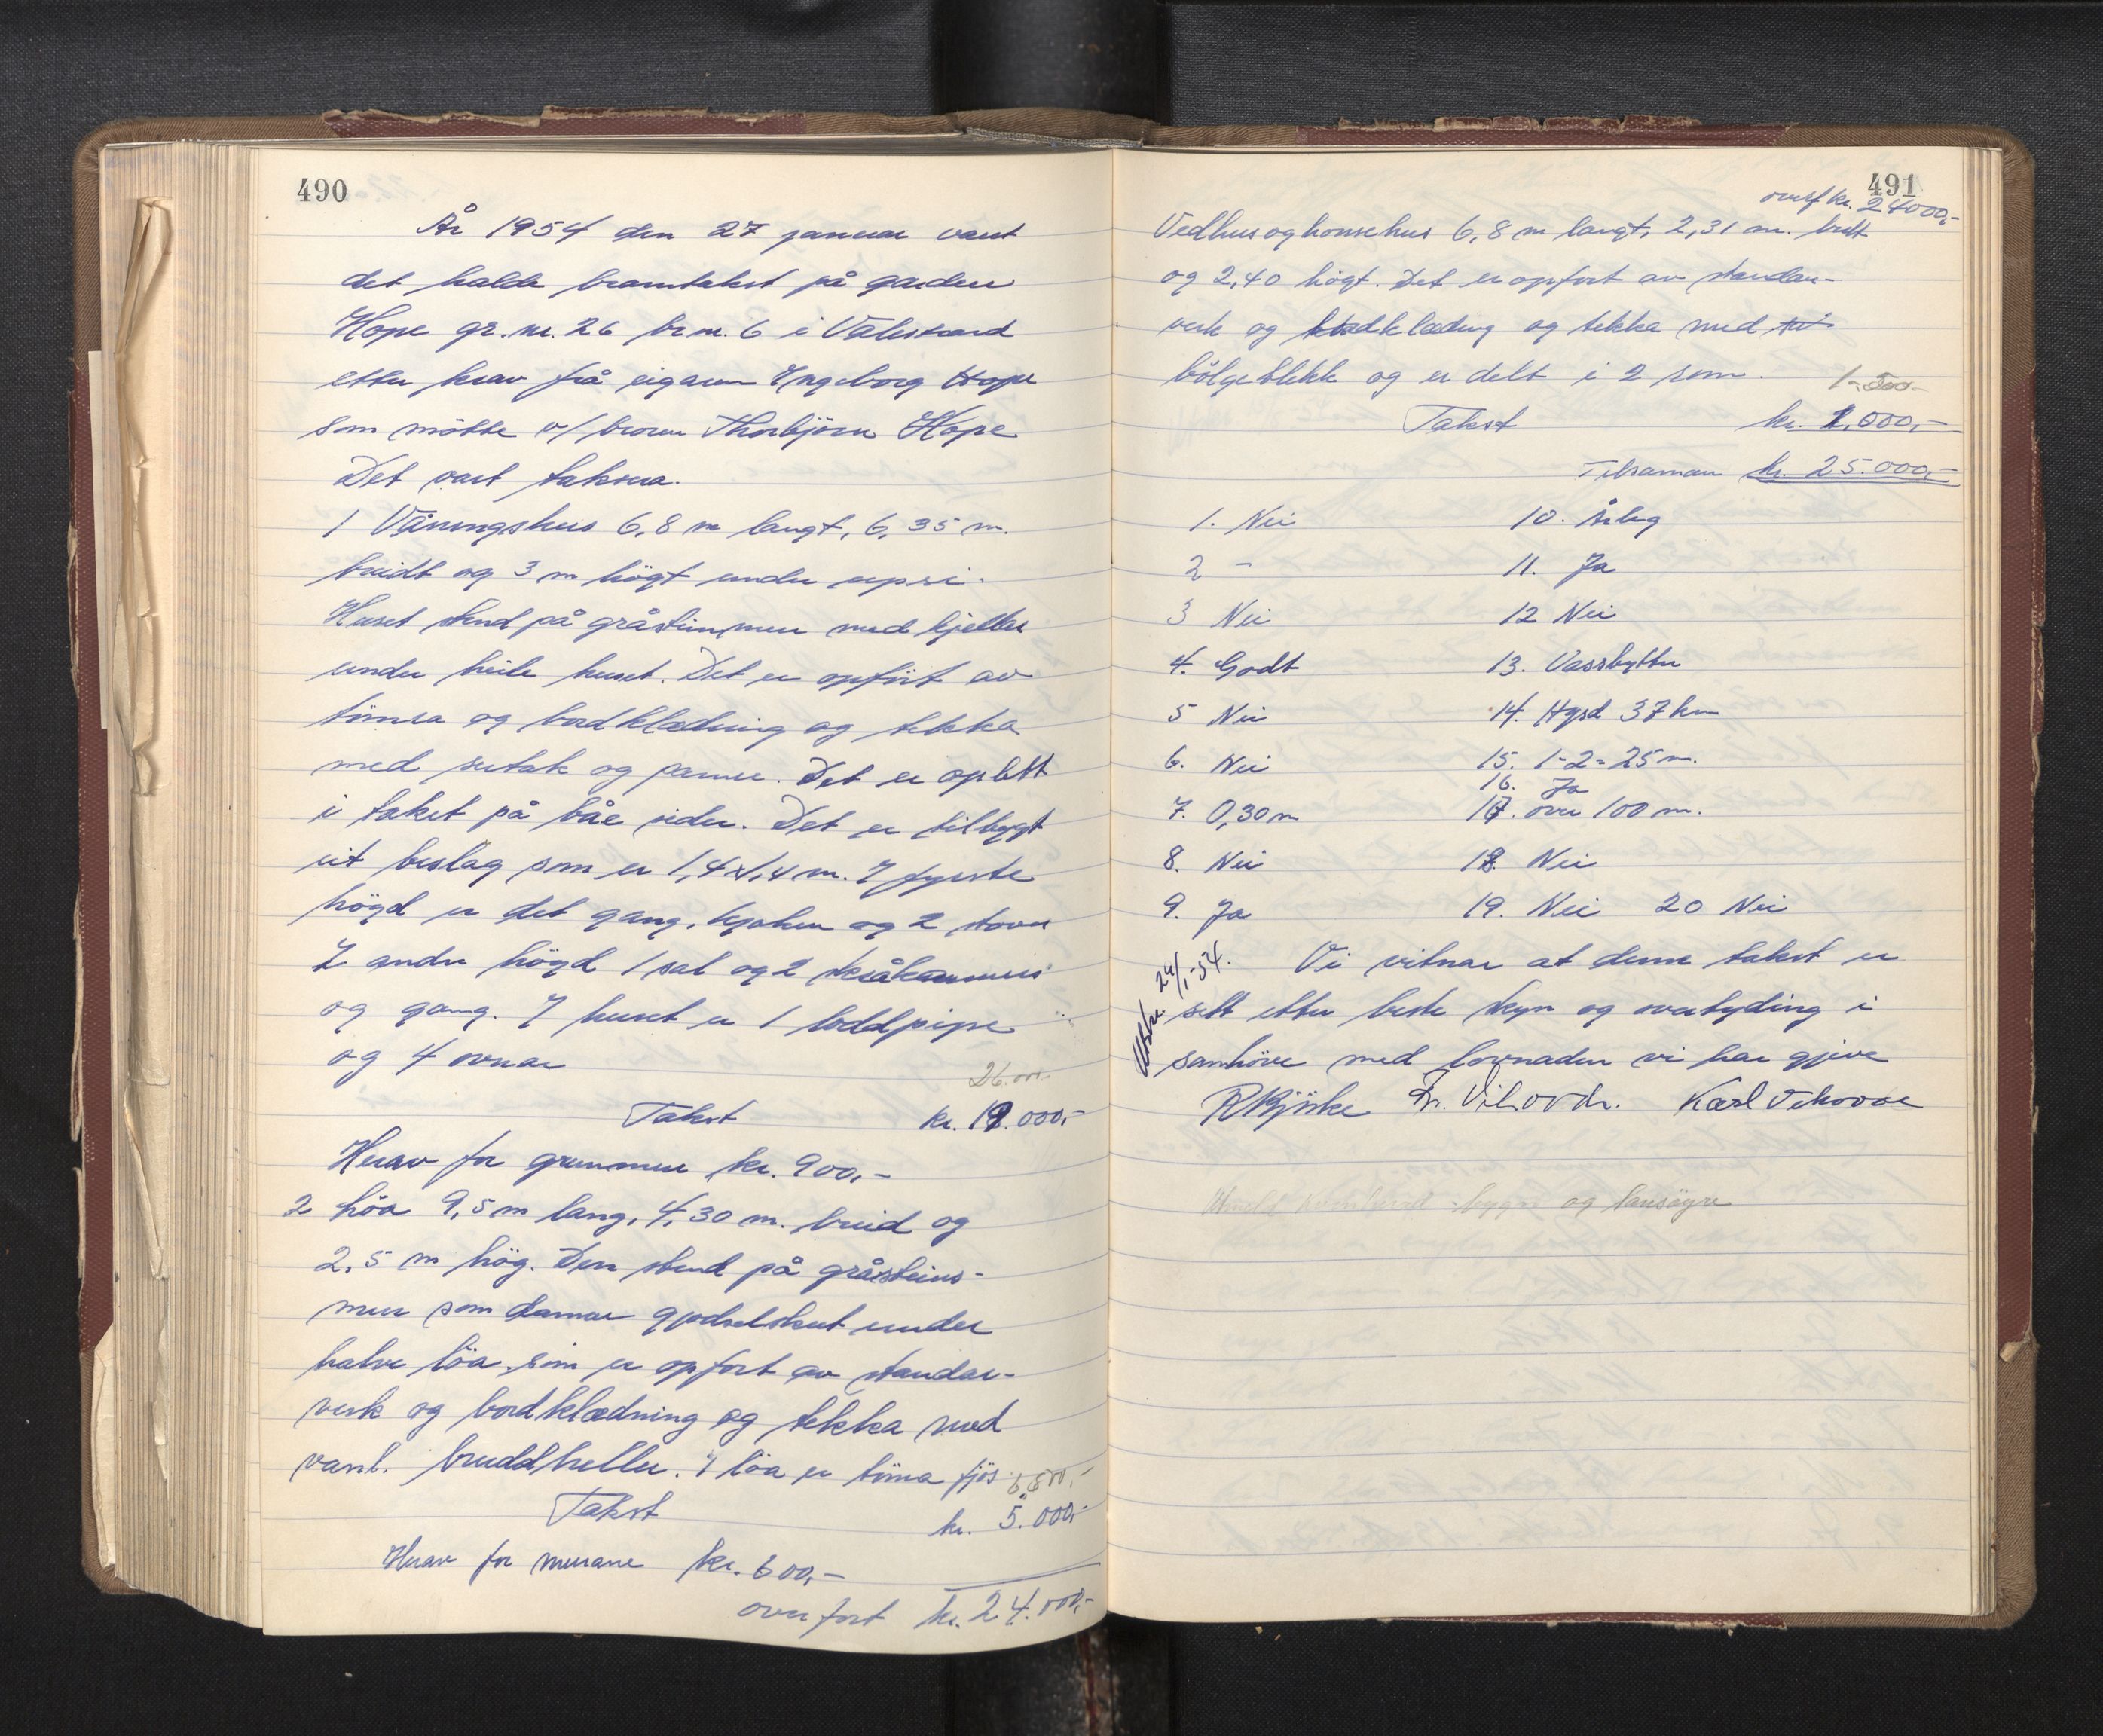 490
År 1954 den 27 januar vart
det halde branntakst på garden
Hope gr.nr. 26 br.nr. 6 i Valestrand
etter krav frå eigaren Ingeborg Hope
som møtte v/ broren Thorbjörn Hope
Det vart taksera.
1 Våningshus 6,8 m langt, 6,35 m.
breidt og 3 m högt under upsi.
Huset stend på gråsteinmur med kjellar
under heile huset. Det er opfört av
tömra og bordklædning og tekka
med sutak og panner. Det er oplett
i taket på båe sider. Det er tilbygt
eit beslag som er 1,4 x 1,4 m. I fyrste
högd er det gang, kjøken og 2 stover
I andre högd 1 sal og 2 skråkammers
og gang. I huset er 1 loddpipe
og 4 ovnar
26.000.-
Takst kr. 19.000,-
Herav for grunnmur kr. 900,-
2 Löa 9,5 m lang, 4,30 m. breid og
2,5 m hög. Den stend på gråsteins-
mur som danner gjødselskut under
halve löa, som er opført av standar-
verk og bordklædning og tekka med
vanl. bruddheller. I löa er tömra fjös
6,500,-
Takst kr. 5.000,-
Herav for murane kr. 600,-
overført kr. 24.000,-
491
overf kr. 24000,-
Vedhus og hønsehus 6,8 m langt, 2,31 m. bredt
og 2,40 högt. Det er opført av standar-
verk og bordklædning og tekka med
bölgeblekk og er delt i 2 rom.
1.500.-
Takst kr. 1.000,-
Tilsaman kr. 25.000,-
1. Nei 10. Årleg
2 - 11. Ja
3 Nei 12 Nei
4. Godt 13. Vassbytter
5 Nei 14. Hgsd 37 km
6. Nei 15. 1-2 = 25 m.
16. Ja
7. 0,30 m 17. over 100 m.
8. Nei 18. Nei
9. Ja 19. Nei 20 Nei
Utskr. 29/1-54.
Vi vitnar at denne takst er
sett etter beste skyn og overtyding i
samhöve med lovnaden vi har gjeve
R Bjørke Karl Tekovoe
og lausöyre